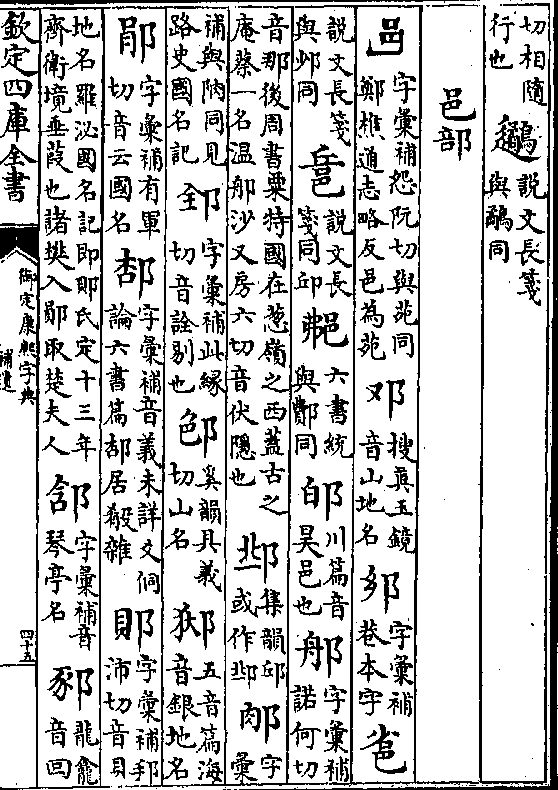 切相隨行也 鷊 說文長箋與鷊同
邑部
字彙補怨阮切與苑同鄭樵通志略反邑為苑 邓 搜真玉鏡音山地名 字彙補巷本字
說文長箋與邺同 說文長箋同邱 六書統與鄪同 川篇音昊邑也 字彙補諾何切
音那後周書粟特國在葱嶺之西蓋古之庵蔡一名温那沙又房六切音伏隱也 集韻邱或作邶 字彙
補與陏同見路史國名記 字彙補此緣切音詮剔也 奚韻具義切山名 五音篇海音銀地名
字彙補有軍切音云國名 郆 字彙補音義未詳文侗論六書篇郆居殽雜 郥 字彙補邦沛切音貝
地名羅泌國名記即郥氏定十三年齊衛境垂葭也諸樊入鄖取楚夫人 字彙補音琴亭名 龍龕音回
欽定四庫全書
御定康熙字典
補遺
四十五